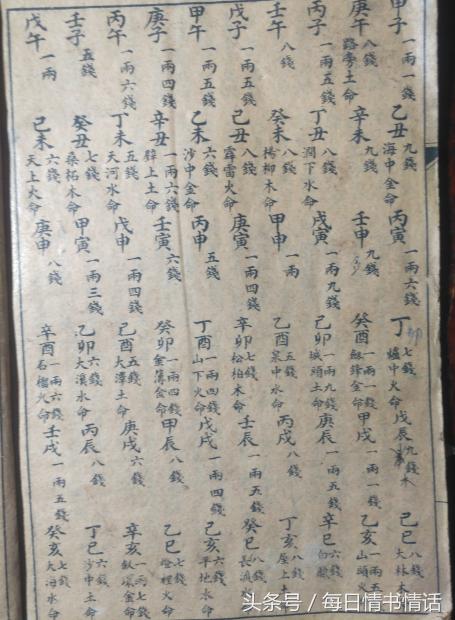 甲子 一兩一錢 乙丑 九錢 海中金命 丙寅 一兩六錢 丁卯 七錢 爐中火命 戊辰 九錢 木 己巳 八錢 大林木
庚午 八錢 路旁土命 辛未 九錢 壬申 九錢 癸酉 一兩一錢 劔鋒金命 甲戌 一兩一錢 乙亥 一兩五 山頭火
丙子 一兩五錢 丁丑 八錢 澗下水命 戊寅 一兩九錢 己卯 一兩九錢 城頭土命 庚辰 一兩五錢 辛巳 六錢 白
壬午 八錢 癸未 八錢 楊柳木命 甲申 一兩 乙酉 五錢 泉中水命 丙戌 八錢 丁亥 八錢 屋上土
戊子 一兩五錢 己丑 八錢 霹雷火命 庚寅 一兩四錢 辛卯 七錢 松柏木命 壬辰 一兩五錢 癸巳 八錢 長流
甲午 一兩五錢 乙未 六錢 沙中金命 丙申 五錢 丁酉 一兩四錢 山下火命 戊戌 一兩四錢 己亥 六錢 平地木命
庚子 一兩四錢 辛丑 一兩六錢 壁上土命 壬寅 六錢 癸卯 一兩四錢 金薄金命 甲辰 八錢 乙巳 七錢 燈裡火命
丙午 一兩六錢 丁未 五錢 天河水命 戊申 一兩四錢 己酉 五錢 大澤土命 庚戌 六錢 辛亥 一兩七錢 釵環金命
壬子 五錢 癸丑 七錢 桑柘木命 甲寅 一兩三錢 乙卯 六錢 大溪水命 丙辰 八錢 丁巳 六錢 沙中土命
戊午 一兩 己未 六錢 天上火命 庚申 八錢 辛酉 一兩六錢 石榴火命 壬戌 一兩五錢 癸亥 七錢 大海水命
头条号 / 每日情书情话